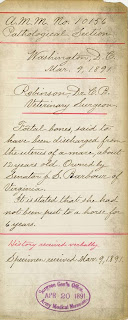 A.M.M. No. 10156
Pathological Section
Washington, D.C.
Mar. 9, 1891.
Robinson, Dr. C. B.
Veterinary Surgeon.
Foetal bones, said to
have been discharged from
the uterus of a mare, about
12 years old. Owned by
Senator J. S. Barbour of
Virginia.
It is stated that she had
not been put to a horse for
6 years.
History received verbally.
Specimen received Mar. 9, 1891.
Surgeon Gen'ls Office
APR 20 1891
Army Medical Museum